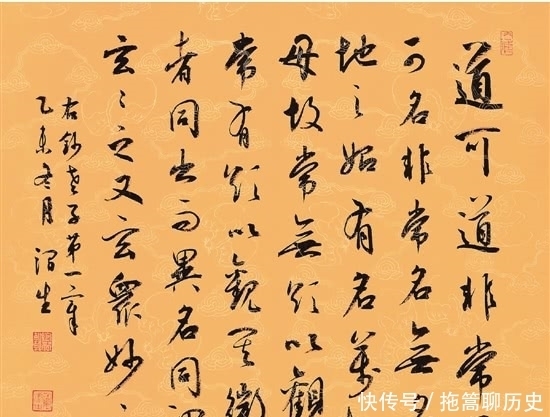 道可道非常
可名非常名無
地之始有名萬
母故常無欲以觀
常有欲以觀其徼
者同出而異名同
玄〻之又玄眾妙之
右鈔老子第一章
乙未冬月
快传号/拖篙聊历史